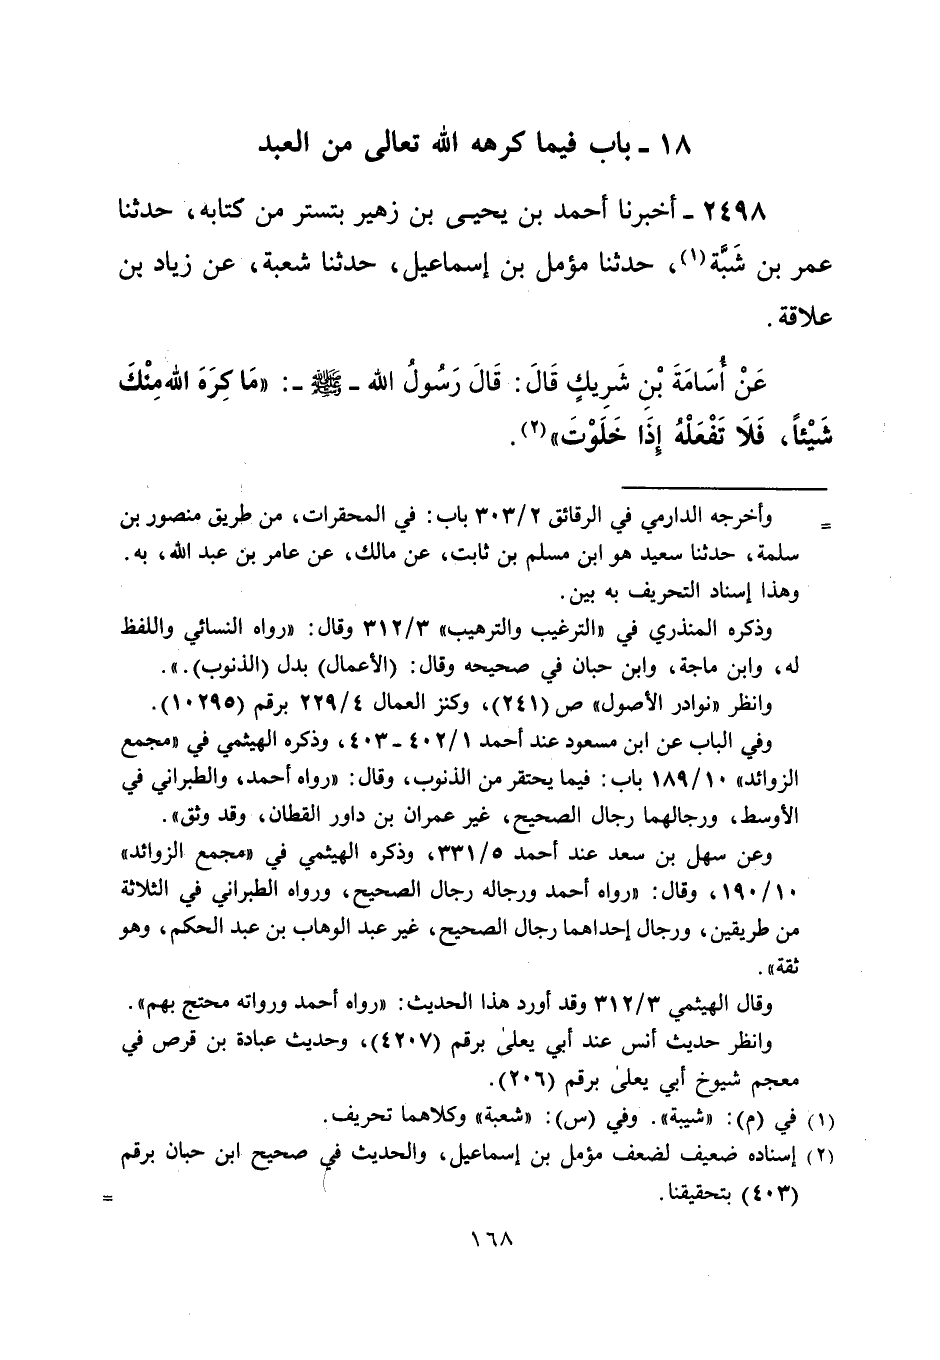 ١٨ ـ باب فيما كرهه الله تعالى من العبد
٢٤٩٨ ـ أخبرنا أحمد بن يحيى بن زهير بتستر من كتابه، حدثنا
عمر بن شَبَّة(١)، حدثنا مؤمل بن إسماعيل، حدثنا شعبة، عن زياد بن
علاقة.
عَنْ أُسَامَةَ بْنِ شَرِيكٍ قَالَ: قَالَ رَسُولُ الله ـ ﷺ ـ: «مَا كَرِهَ الله مِنْكَ
شَيْئاً، فَلَا تَفْعَلْهُ إِذَا خَلَوْتَ»(٢).
= وأخرجه الدارمي في الرقائق ٣٠٣/٢ باب: في المحقرات، من طريق منصور بن
سلمة، حدثنا سعيد هو ابن مسلم بن ثابت، عن مالك، عن عامر بن عبد الله، به.
وهذا إسناد التحريف به بين.
وذكره المنذري في «الترغيب والترهيب» ٣١٢/٣ وقال: «رواه النسائي واللفظ
له، وابن ماجة، وابن حبان في صحيحه وقال: (الأعمال) بدل (الذنوب).».
وانظر «نوادر الأصول» ص (٢٤١)، وكنز العمال ٢٢٩/٤ برقم (١٠٢٩٥).
وفي الباب عن ابن مسعود عند أحمد ٤٠٢/١ ـ ٤٠٣، وذكره الهيثمي في «مجمع
الزوائد» ١٨٩/١٠ باب: فيما يحتقر من الذنوب، وقال: «رواه أحمد، والطبراني في
الأوسط، ورجالهما رجال الصحيح، غير عمران بن داور القطان، وقد وثق».
وعن سهل بن سعد عند أحمد ٣٣١/٥، وذكره الهيثمي في «مجمع الزوائد»
١٩٠/١٠، وقال: «رواه أحمد ورجاله رجال الصحيح، ورواه الطبراني في الثلاثة
من طريقين، ورجال إحداهما رجال الصحيح، غير عبد الوهاب بن عبد الحكم، وهو
ثقة».
وقال الهيثمي ٣١٢/٣ وقد أورد هذا الحديث: «رواه أحمد ورواته محتج بهم».
وانظر حديث أنس عند أبي يعلىٰ برقم (٤٢٠٧)، وحديث عبادة بن قرص في
معجم شيوخ أبي يعلىٰ برقم (٢٠٦).
(١) في (م): «شيبة». وفي (س): «شعبة» وكلاهما تحريف.
(٢) إسناده ضعيف لضعف مؤمل بن إسماعيل، والحديث في صحيح ابن حبان برقم
(٤٠٣) بتحقيقنا. =
١٦٨